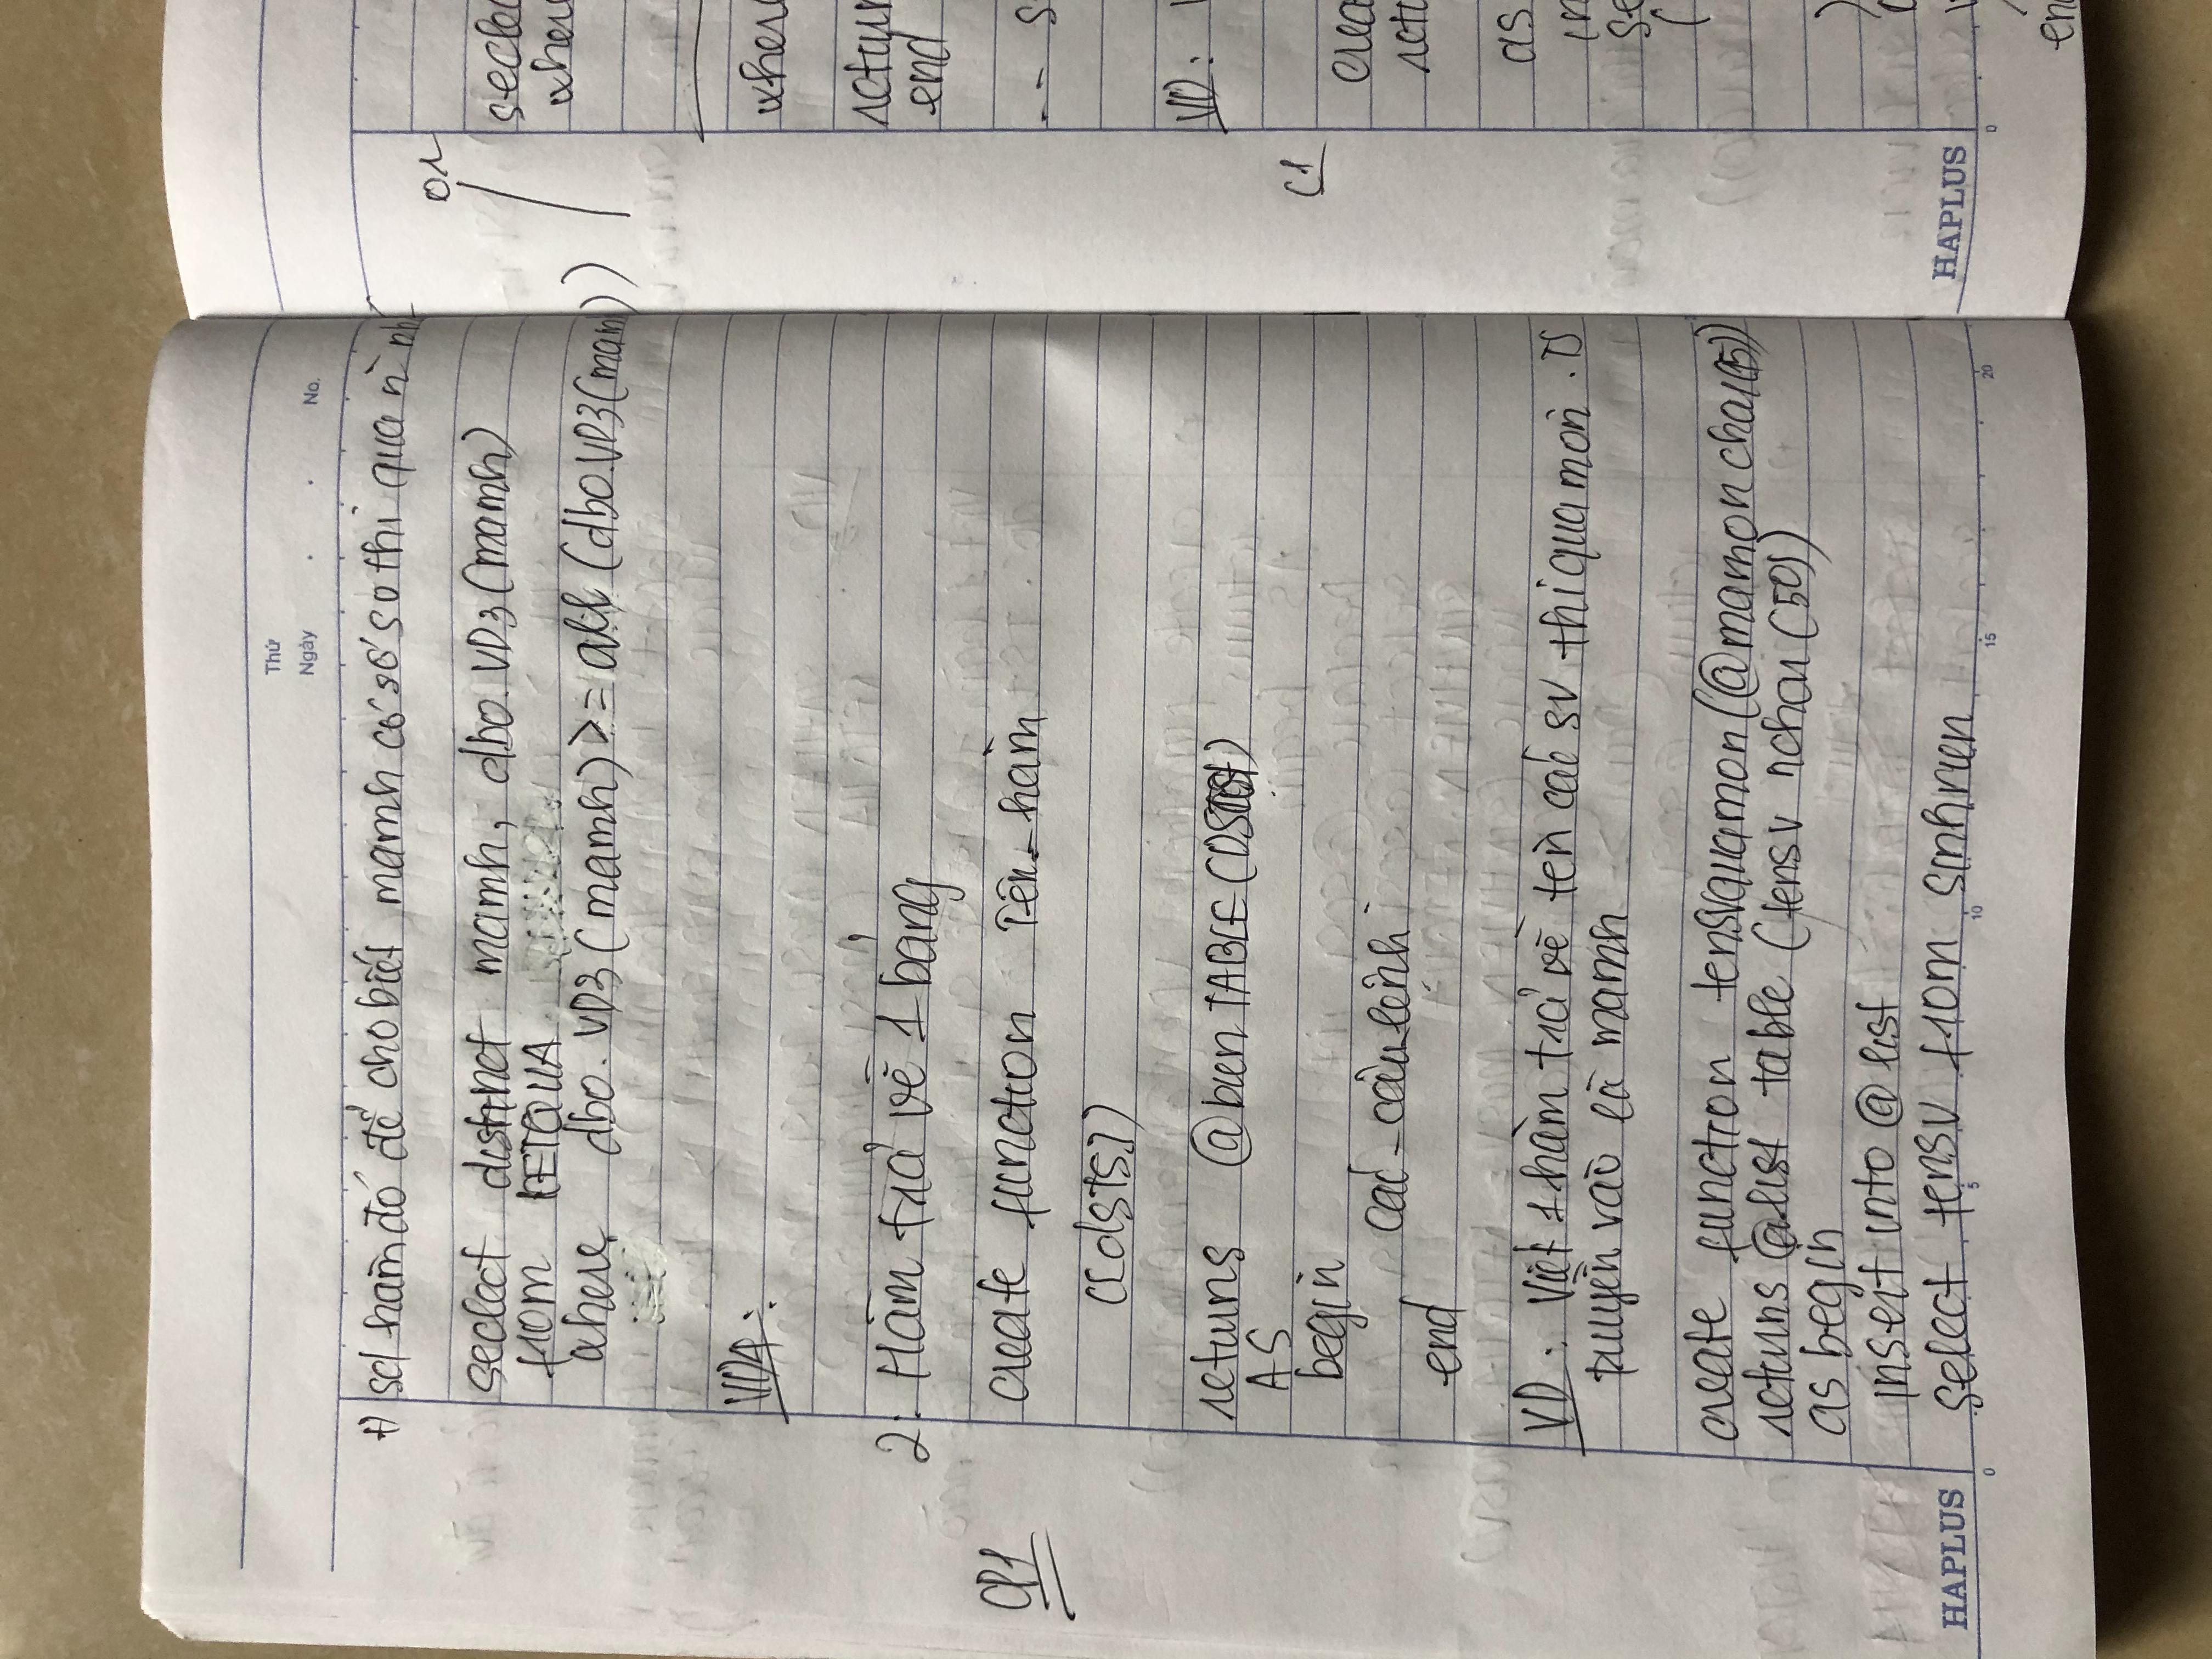 Thứ
Ngày . . No.
+) sd hàm đó để cho biết mamh có số sv thi qua n nh
seclect distinct mamh, dbo.VD3(mamh)
from KETQUA
where dbo.VD3(mamh) >= all (dbo.VD3(mamh))
VD4:
2. Hàm trả về 1 bảng
C1
create function Tên_hàm
([dsts])
returns @bien TABLE (
AS
begin
các_câu_lệnh
end
VD: Viết 1 hàm trả về tên các sv thi qua môn. TS
truyền vào là mamh
create function tensvquamon(@mamon char(15))
returns @list table (tensv nchar(50))
as begin
insert into @list
select tensv from sinhvien
HAPLUS
0 5 10 15 20
or
seclec
where
where
return
end
-- s
VD:
C1
crea
retu
as
in
se
(
)
end
HAPLUS
0